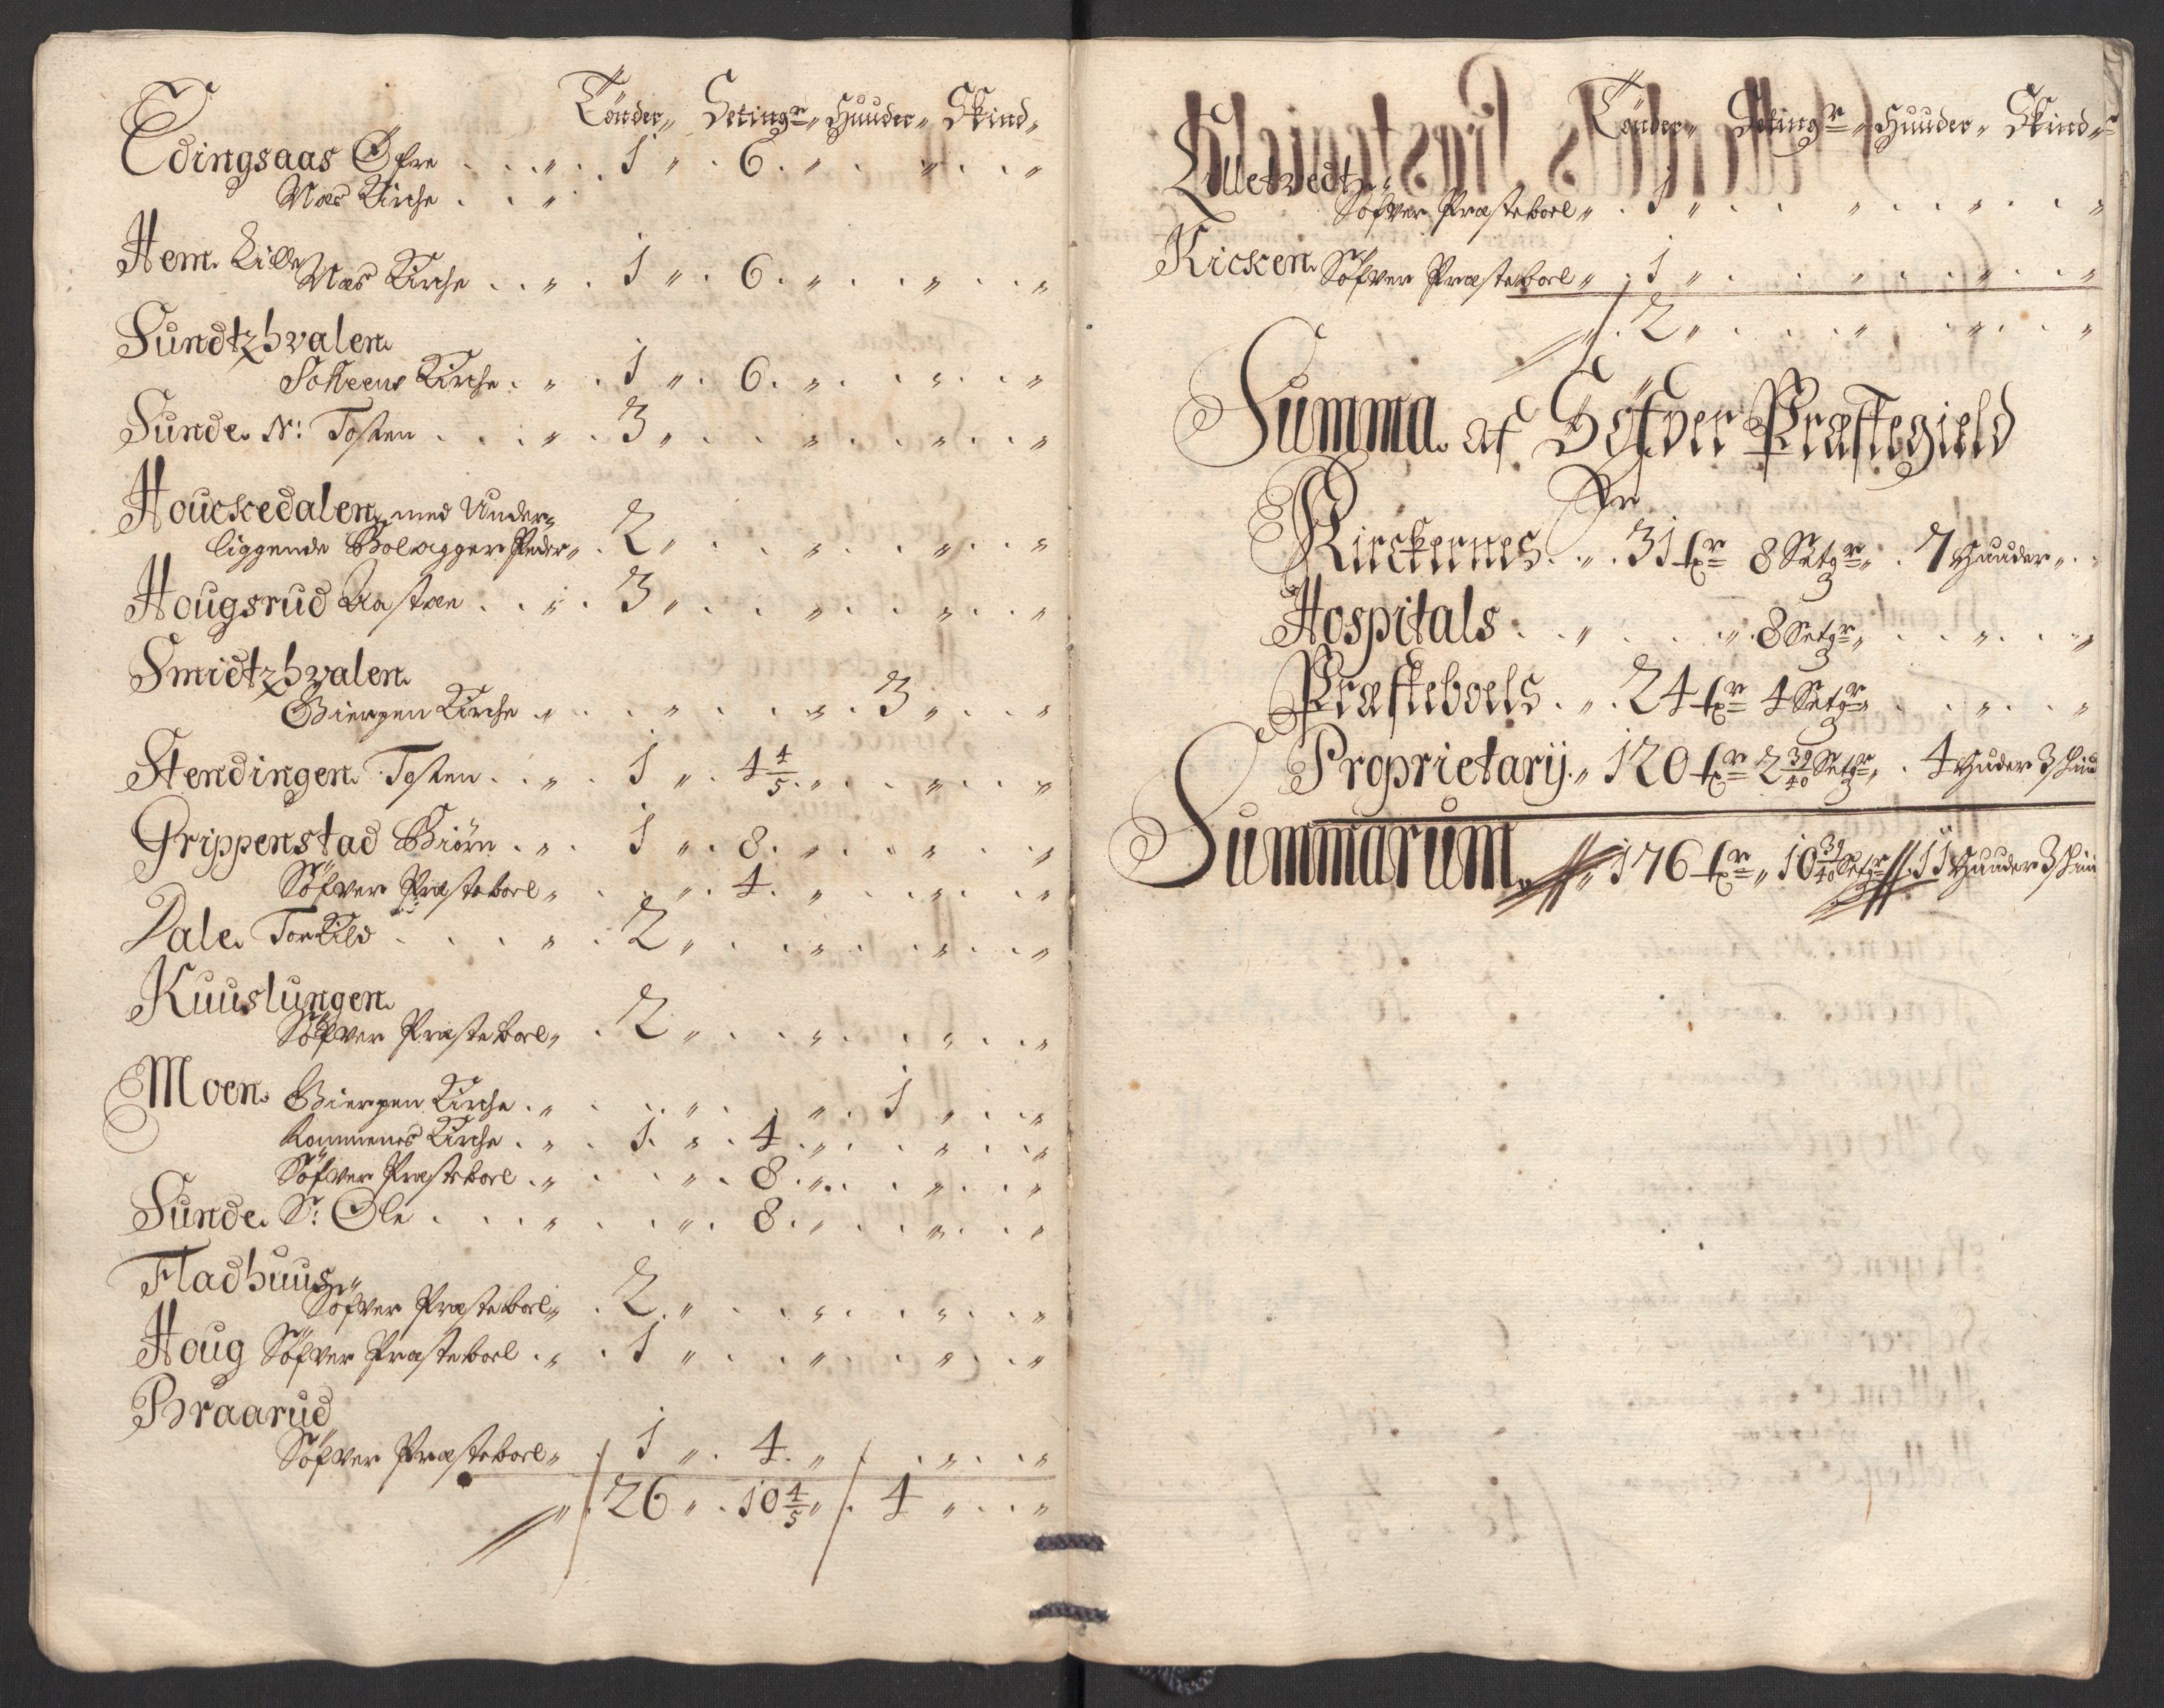 Tönder„ Setingr„ Huuder„ Skind„
Edingsaas Øfre . . . „ . . 1 „ . 6. „ . . „ . . „
Næs Kirche . . „
Hem. Lille Næs Kirche . . „ . 1 „ . 6. „ . . . „ . . . „
Sundtzhvalen.
Solleens Kirche . „ . 1 „ . 6. „ . . „ . . „
Sunde. N: Tosten . . . „ . 3 „ . . . „ . . . „ . . „
Houckedalen, med Under„
liggende Bolagger Peder„ . 2 „ . . . „ . . . „ . . „
Hougsrud Aastæn . . „ . 3 „ . . . „ . . . „ . . „
Smidtzhvalen.
Gierpen Kirche . „ . . . „ . . . „ . 3 „ . . „
Stendingen. Tosten . . „ . 1 „ . 4 4/5 „ . . „ . . „
Grippenstad Biörn . . „ . 1 „ . 8. „ . . „ . . „
Söfver Præsteboel „ . . „ . 4. „ . . „ . . „
Dale. Torkild . . . „ . 2 „ . . . „ . . . „ . . „
Kuuslungen.
Söfver Præsteboel„ . 2 „ . . . „ . . . „ . . „
Moen. Gierpen Kirche . „ . . . „ . . . „ . 1 „ . . „
Rommenes Kirche . „ . 1. „ . 4. „ . . „ . . „
Söfver Præsteboel . „ . . „ . 8. „ . . „ . . „
Sunde. S: Ole . . . „ . . . „ . 8. „ . . „ . . „
Fladhuus
Söfver Præsteboel„ . 2. „ . . . „ . . . „ . . „
Houg Söfver Præsteboel . „ . 1 „ . . . „ . . . „ . . „
Braarud
Söfver Præsteboel„ . 1 „ . 4. „ . . „ . . „
„ . 26 „ . 10 4/5 „ . 4 „ . . „
Tönder„ Setingr„ Huuder„ Skind„
Lilletvedt
Söfver Præsteboel„ . 1 „ . . . „ . . . „ . . „
Kicken. Söfver Præsteboel„ . 1 „ . . . „ . . . „ . . „
„ . 2 „ . . . „ . . . „ . . „
Summa. af Söfver Præstegield
Er
Kirckernes. . „ . 31 txr 8 Setgr„ . 7 Huuder„ .
Hospitals . . „ . . . „ . 8 Setgr„ . . . „ . . „
Præsteboels. . „ . 24 txr 4 Setgr„ . . . „ . . „
Proprietarij. „ 120 txr 2 39/40 Setgr„ . 4 Huder 3 skind
Summarum. „ 176 txr„ 10 39/40 Setgr . 11 Huuder 3 skin